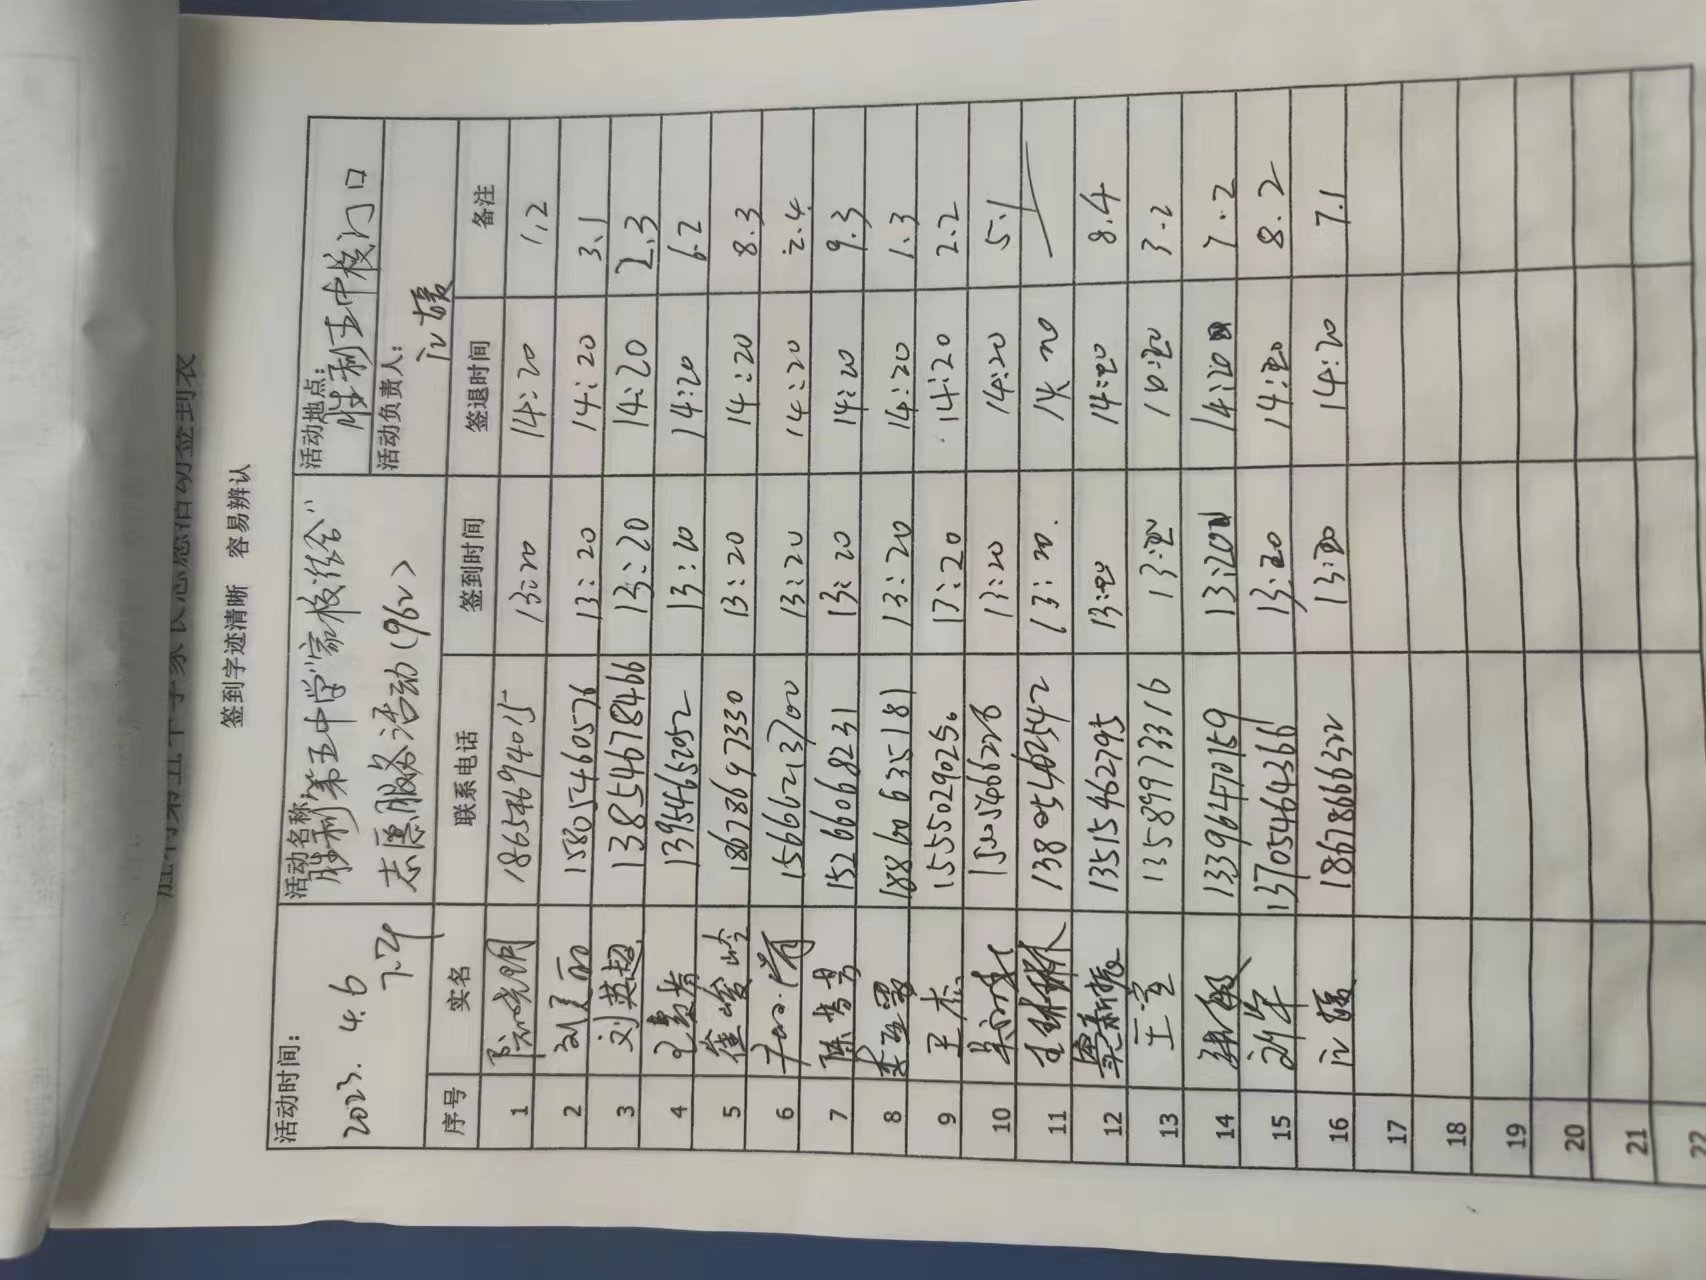 签到字迹清晰 容易辨认
活动时间: 2023.4.6 下午
活动名称: 胜利第五中学“家校结合”
志愿服务活动(962)
活动地点: 胜利五中校门口
活动负责人:
序号 实名 联系电话 签到时间 签退时间 备注
1 18654694015 13:20 14:20 1.2
2 15805460576 13:20 14:20 3.1
3 刘英超 13854678466 13:20 14:20 2.3
4 13954465052 13:20 14:20 6.2
5 崔峻岭 18678697330 13:20 14:20 8.3
6 15666213700 13:20 14:20 2.4
7 陈芳芳 15266068231 13:20 14:20 9.3
8 18860635181 13:20 14:20 1.3
9 王杰 15550290256 13:20 14:20 2.2
10 13:20 14:20 5.1
11 王琳琳 13805460542 13:20 14:20
12 13515462795 13:20 14:20 8.4
13 13589973316 13:20 3.2
14 13396470159 13:20 14:20 7.2
15 13705464366 13:20 14:20 8.2
16 18678666322 13:20 14:20 7.1
17
18
19
20
21
22